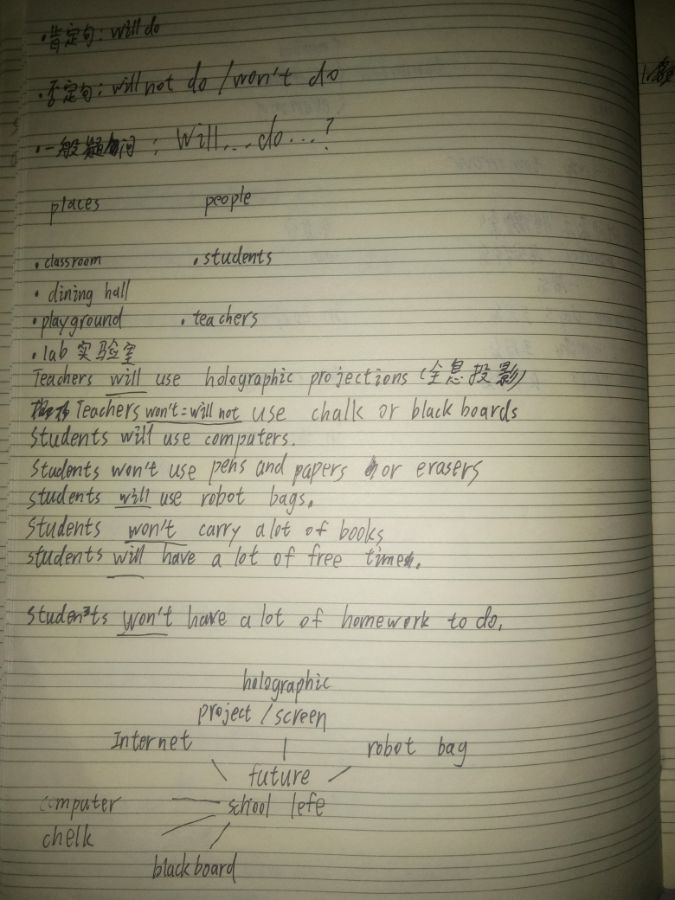 ·肯定句: will do
·否定句: will not do / won't do
·一般疑问: Will...do...?
places people
·classroom ·students
·dining hall
·playground ·teachers
·lab 实验室
Teachers will use holographic projections (全息投影)
Teachers won't = will not use chalk or black boards
Students will use computers.
Students won't use pens and papers or erasers
students will use robot bags.
Students won't carry a lot of books
students will have a lot of free time.
Students won't have a lot of homework to do.
holographic
project / screen
Internet robot bag
future
computer school lefe
chelk
blackboard